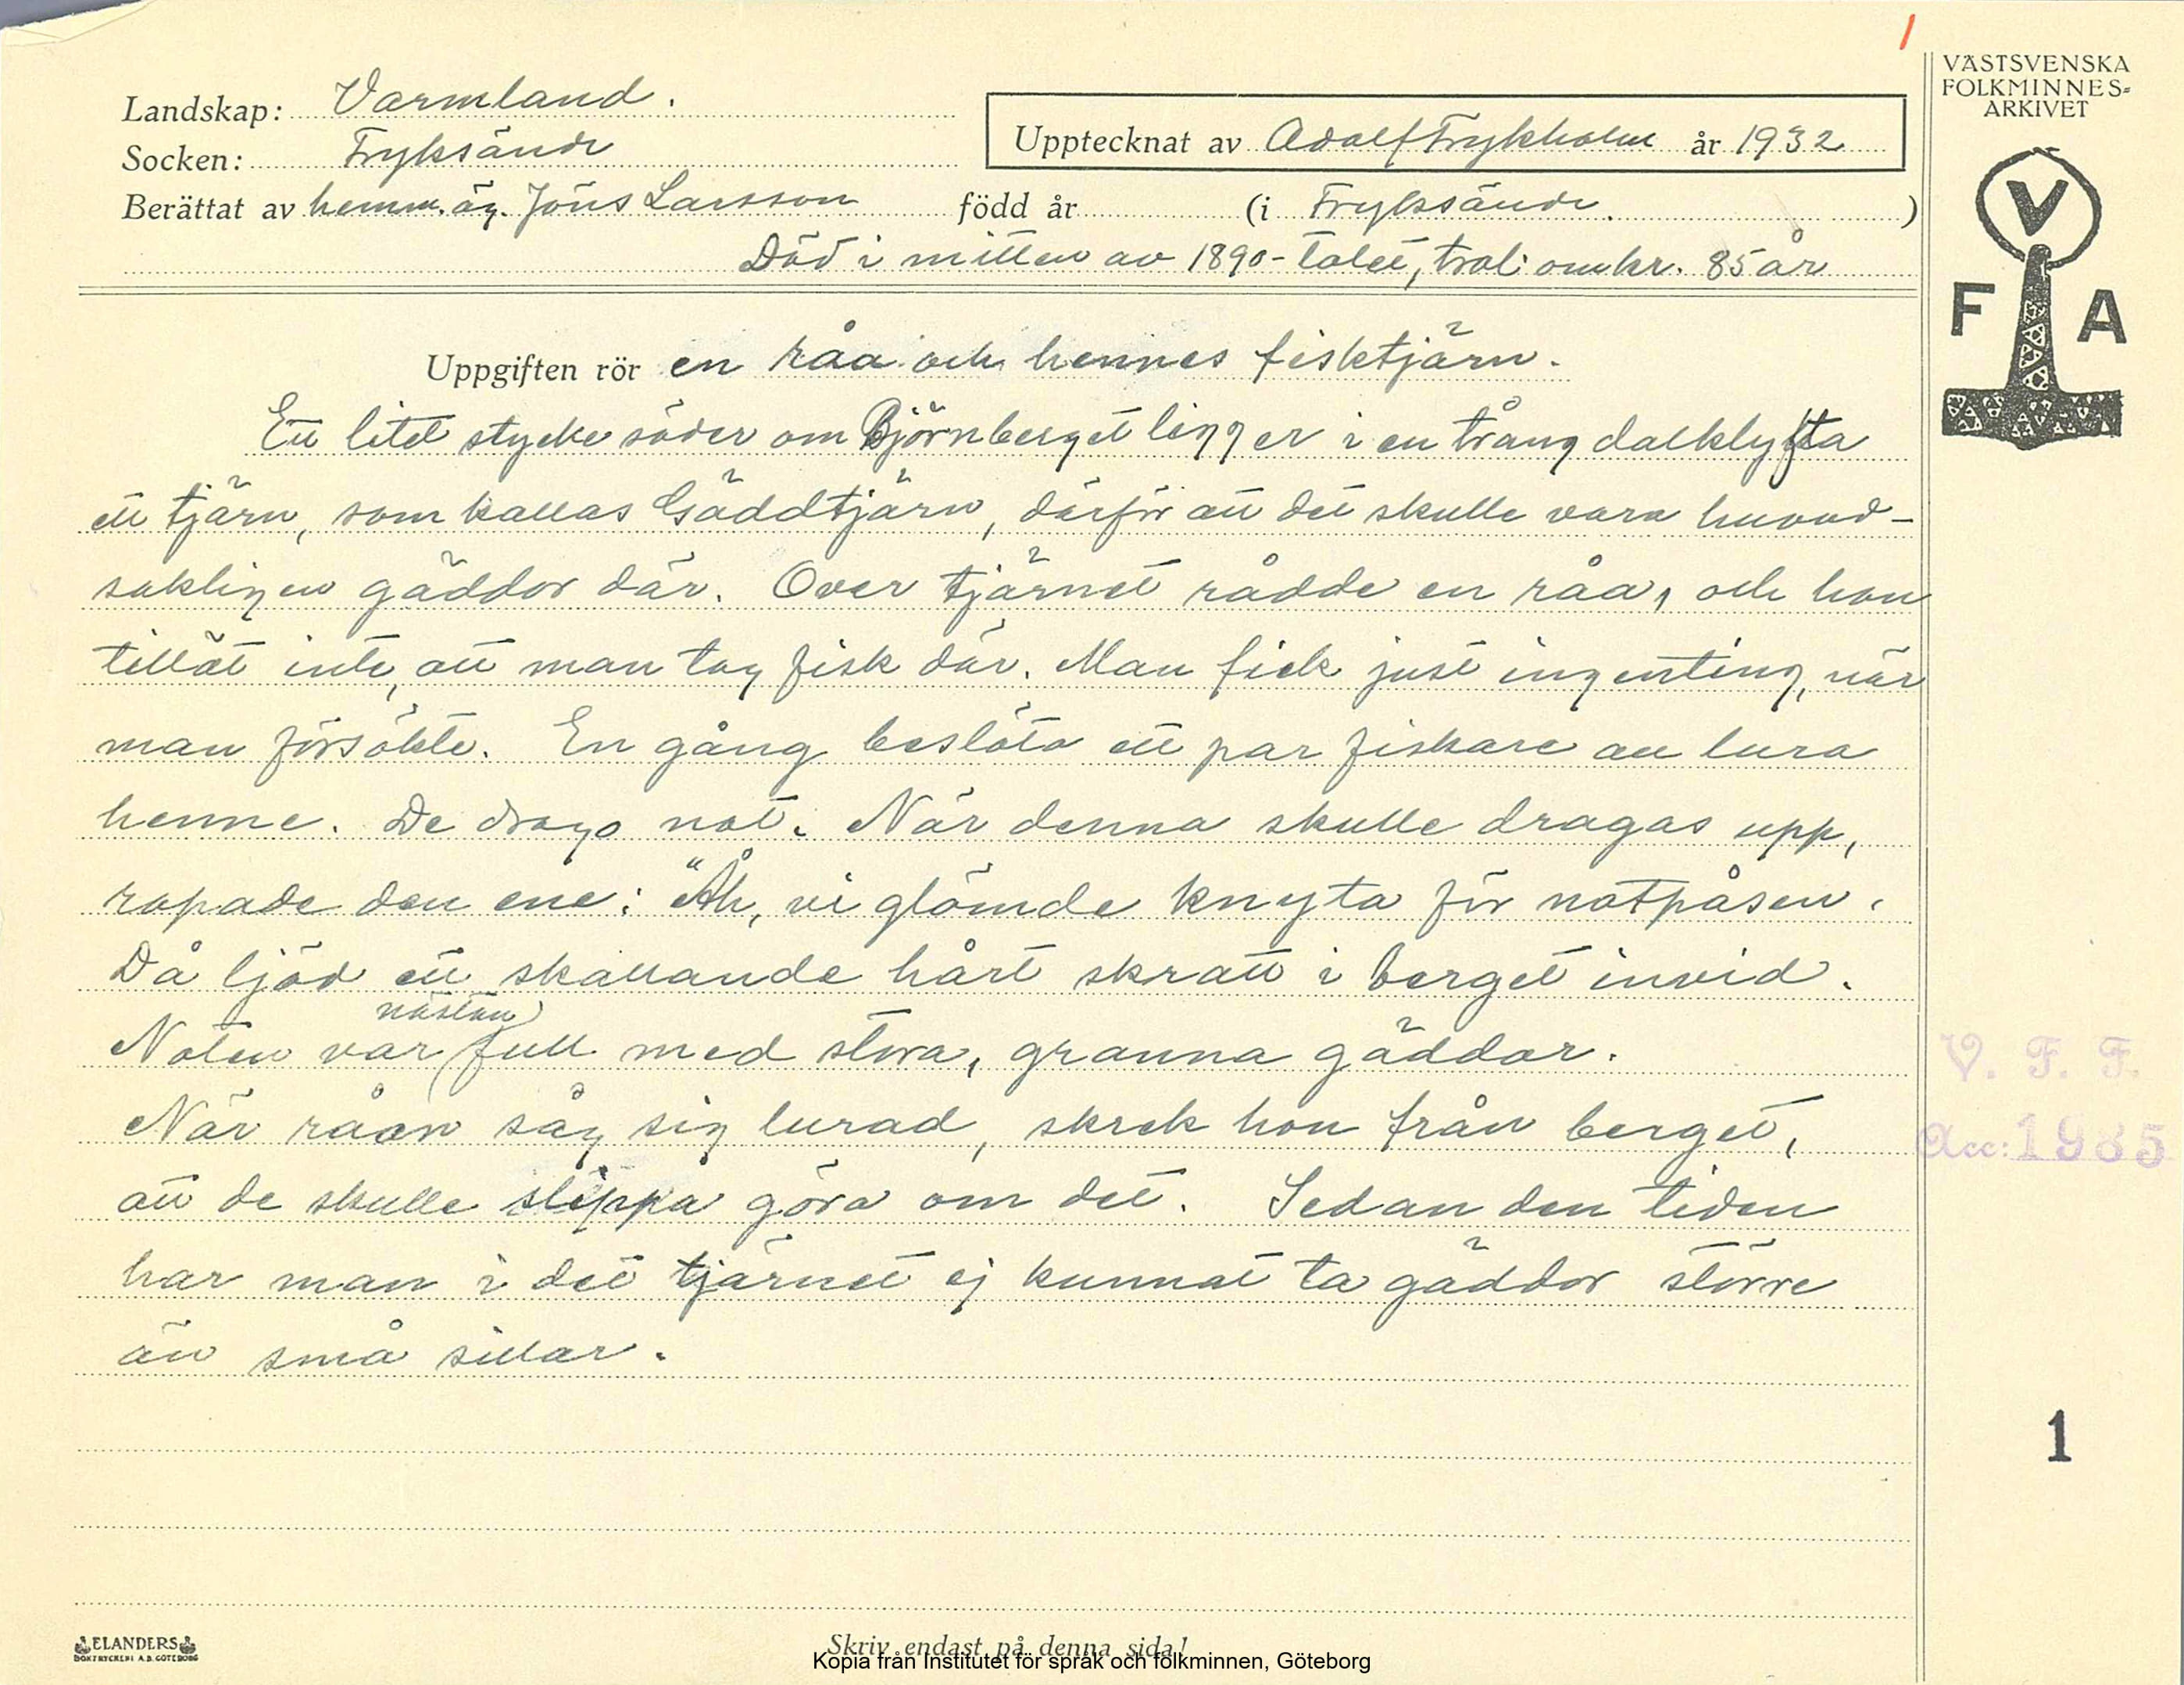 1
VÄSTSVENSKA
FOLKMINNES=
ARKIVET
V
F A
Landskap: Värmland.
Socken: Fryksände
Upptecknat av Adolf Frykholm år 1932
Berättat av hemm.äg. Jöns Larsson född år (i Fryksände.)
Död i mitten av 1890-talet, trol. omkr. 85 år
Uppgiften rör en råa och hennes fisktjärn.
Ett litet stycke söder om Björnberget ligger i en trång dalklyfta
ett tjärn, som kallas Gäddtjärn, därför att det skulle vara huvud-
sakligen gäddor där. Över tjärnet rådde en råa, och hon
tillät inte, att man tog fisk där. Man fick just ingenting, när
man försökte. En gång beslöto ett par fiskare att lura
henne. De drogo not. När denna skulle dragas upp,
ropade den ene: "Åh, vi glömde knyta för notpåsen.
Då ljöd ett skallande hårt skratt i berget invid.
nästan
Noten var full med stora, granna gäddor.
När råan såg sig lurad, skrek hon från berget,
att de skulle slippa göra om det. Sedan den tiden
har man i det tjärnet ej kunnat ta gäddor större
än små sillar.
V. F. F.
Acc: 1985
1
ELANDERS
BOKTRYCKERI A.B. GÖTEBORG
Skriv endast på denna sida!
Kopia från Institutet för språk och folkminnen, Göteborg